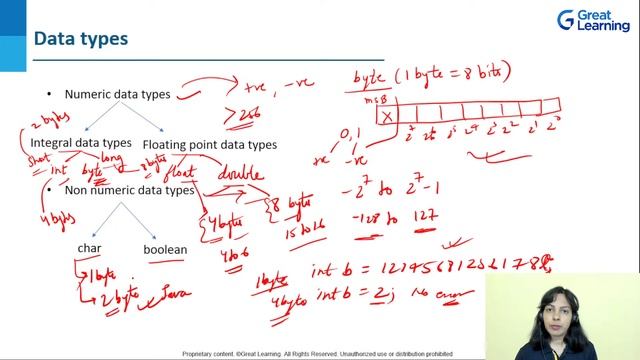 Great Learning
Data types
• Numeric data types
+ve, -ve
> 256
byte (1 byte = 8 bits)
msB
X
2^7 2^6 2^5 2^4 2^3 2^2 2^1 2^0
0, 1
+ve -ve
2 bytes
Integral data types
Floating point data types
short int byte long
8 bytes
float double
4 bytes
• Non numeric data types
4 bytes
4 to 6
8 byte
15 to 16
-2^7 to 2^7-1
-128 to 127
char
boolean
1 byte
2 byte Java
1 byte
4 byte
int b = 2; No error
Proprietary content. ©Great Learning. All Rights Reserved. Unauthorized use or distribution prohibited